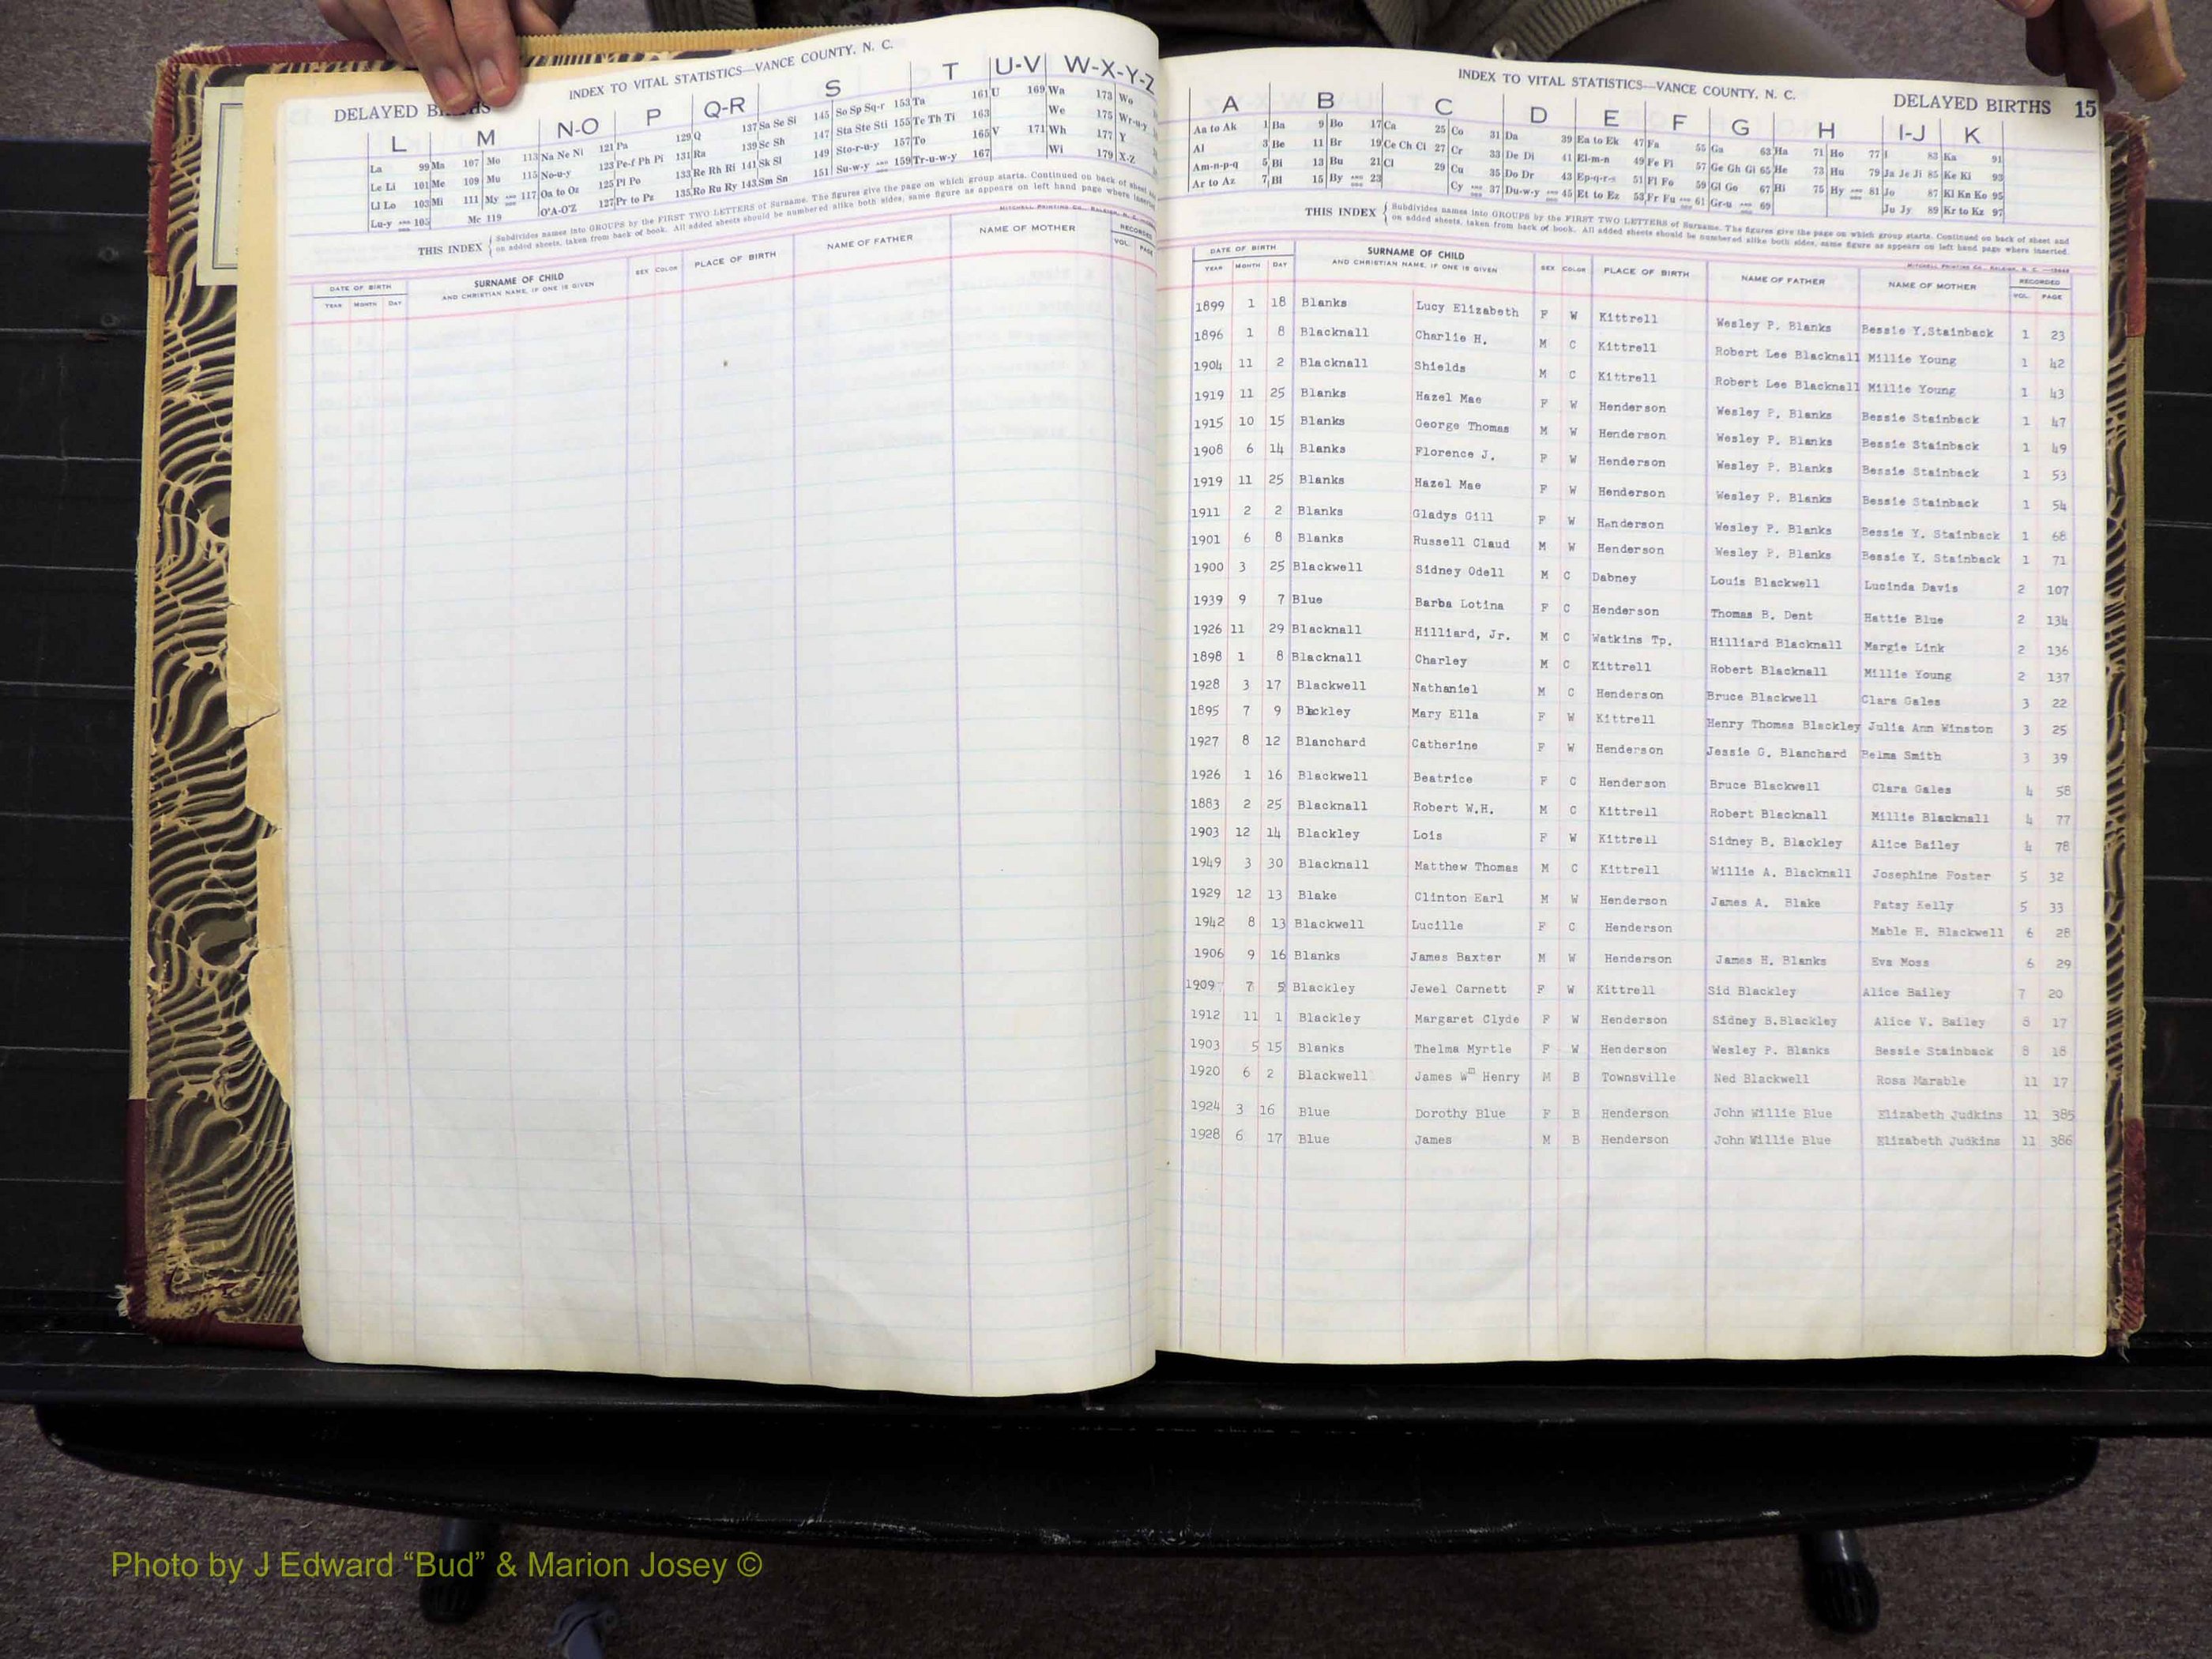 INDEX TO VITAL STATISTICS—VANCE COUNTY, N. C.
DELAYED BIRTHS
L M N-O P Q-R S T U-V W-X-Y-Z
La 99 Ma 107 Mo 113 Na Ne Ni 121 Pa 129 Q 137 Sa Se Si 145 So Sp Sq-r 153 Ta 161 U 169 Wa 173 Wo
Le Li 101 Me 109 Mu 115 No-u-y 123 Pe-f Ph Pi 131 Ra 139 Sc Sh 147 Sta Ste Sti 155 Te Th Ti 163 We 175 Wr-u-y
Ll Lo 103 Mi 111 My AND ODD 117 Oa to Oz 125 Pl Po 133 Re Rh Ri 141 Sk Sl 149 Sto-r-u-y 157 To 165 V 171 Wh 177 Y
Lu-y AND ODD 105 Mc 119 O'A-O'Z 127 Pr to Pz 135 Ro Ru Ry 143 Sm Sn 151 Su-w-y AND ODD 159 Tr-u-w-y 167 Wi 179 X-Z
THIS INDEX { Subdivides names into GROUPS by the FIRST TWO LETTERS of Surname. The figures give the page on which group starts. Continued on back of sheet
on added sheets, taken from back of book. All added sheets should be numbered alike both sides, same figure as appears on left hand page where inserted
MITCHELL PRINTING CO., RALEIGH, N. C.
DATE OF BIRTH SURNAME OF CHILD SEX COLOR PLACE OF BIRTH NAME OF FATHER NAME OF MOTHER RECORDED
YEAR MONTH DAY AND CHRISTIAN NAME, IF ONE IS GIVEN VOL. PAGE
INDEX TO VITAL STATISTICS—VANCE COUNTY, N. C.
DELAYED BIRTHS 15
A B C D E F G H I-J K
Aa to Ak 1 Ba 9 Bo 17 Ca 25 Co 31 Da 39 Ea to Ek 47 Fa 55 Ga 63 Ha 71 Ho 77 I 83 Ka 91
Al 3 Be 11 Br 19 Ce Ch Ci 27 Cr 33 De Di 41 El-m-n 49 Fe Fi 57 Ge Gh Gi 65 He 73 Hu 79 Ja Je Ji 85 Ke Ki 93
Am-n-p-q 5 Bi 13 Bu 21 Cl 29 Cu 35 Do Dr 43 Ep-q-r-s 51 Fl Fo 59 Gl Go 67 Hi 75 Hy AND ODD 81 Jo 87 Kl Kn Ko 95
Ar to Az 7 Bl 15 By AND ODD 23 Cy AND ODD 37 Du-w-y AND ODD 45 Et to Ez 53 Fr Fu AND ODD 61 Gr-u AND ODD 69 Ju Jy 89 Kr to Kz 97
THIS INDEX { Subdivides names into GROUPS by the FIRST TWO LETTERS of Surname. The figures give the page on which group starts. Continued on back of sheet and
on added sheets, taken from back of book. All added sheets should be numbered alike both sides, same figure as appears on left hand page where inserted.
MITCHELL PRINTING CO., RALEIGH, N. C.
DATE OF BIRTH SURNAME OF CHILD SEX COLOR PLACE OF BIRTH NAME OF FATHER NAME OF MOTHER RECORDED
YEAR MONTH DAY AND CHRISTIAN NAME, IF ONE IS GIVEN VOL. PAGE
1899 1 18 Blanks Lucy Elizabeth F W Kittrell Wesley P. Blanks Bessie Y.Stainback 1 23
1896 1 8 Blacknall Charlie H. M C Kittrell Robert Lee Blacknall Millie Young 1 42
1904 11 2 Blacknall Shields M C Kittrell Robert Lee Blacknall Millie Young 1 43
1919 11 25 Blanks Hazel Mae F W Henderson Wesley P. Blanks Bessie Stainback 1 47
1915 10 15 Blanks George Thomas M W Henderson Wesley P. Blanks Bessie Stainback 1 49
1908 6 14 Blanks Florence J. F W Henderson Wesley P. Blanks Bessie Stainback 1 53
1919 11 25 Blanks Hazel Mae F W Henderson Wesley P. Blanks Bessie Stainback 1 54
1911 2 2 Blanks Gladys Gill F W Henderson Wesley P. Blanks Bessie Y. Stainback 1 68
1901 6 8 Blanks Russell Claud M W Henderson Wesley P. Blanks Bessie Y. Stainback 1 71
1900 3 25 Blackwell Sidney Odell M C Dabney Louis Blackwell Lucinda Davis 2 107
1939 9 7 Blue Barba Lotina F C Henderson Thomas B. Dent Hattie Blue 2 134
1926 11 29 Blacknall Hilliard, Jr. M C Watkins Tp. Hilliard Blacknall Margie Link 2 136
1898 1 8 Blacknall Charley M C Kittrell Robert Blacknall Millie Young 2 137
1928 3 17 Blackwell Nathaniel M C Henderson Bruce Blackwell Clara Gales 3 22
1895 7 9 Blackley Mary Ella F W Kittrell Henry Thomas Blackley Julia Ann Winston 3 25
1927 8 12 Blanchard Catherine F W Henderson Jessie G. Blanchard Belma Smith 3 39
1926 1 16 Blackwell Beatrice F C Henderson Bruce Blackwell Clara Gales 4 58
1883 2 25 Blacknall Robert W.H. M C Kittrell Robert Blacknall Millie Blacknall 4 77
1903 12 14 Blackley Lois F W Kittrell Sidney B. Blackley Alice Bailey 4 78
1949 3 30 Blacknall Matthew Thomas M C Kittrell Willie A. Blacknall Josephine Foster 5 32
1929 12 13 Blake Clinton Earl M W Henderson James A. Blake Patsy Kelly 5 33
1942 8 13 Blackwell Lucille F C Henderson Mable H. Blackwell 6 28
1906 9 16 Blanks James Baxter M W Henderson James H. Blanks Eva Moss 6 29
1909 7 5 Blackley Jewel Carnett F W Kittrell Sid Blackley Alice Bailey 7 20
1912 11 1 Blackley Margaret Clyde F W Henderson Sidney B.Blackley Alice V. Bailey 8 17
1903 5 15 Blanks Thelma Myrtle F W Henderson Wesley P. Blanks Bessie Stainback 8 18
1920 6 2 Blackwell James Wm Henry M B Townsville Ned Blackwell Rosa Marable 11 17
1924 3 16 Blue Dorothy Blue F B Henderson John Willie Blue Elizabeth Judkins 11 385
1928 6 17 Blue James M B Henderson John Willie Blue Elizabeth Judkins 11 386
Photo by J Edward “Bud” & Marion Josey ©